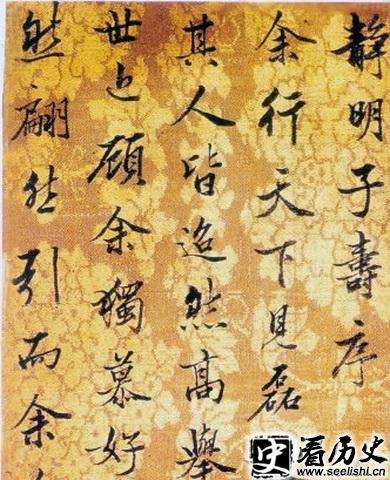 靜明子壽序
余行天下見磊
其人皆迢然高舉
世 顧余獨慕好
然翩然引而余
史看历史
www.seelishi.cn